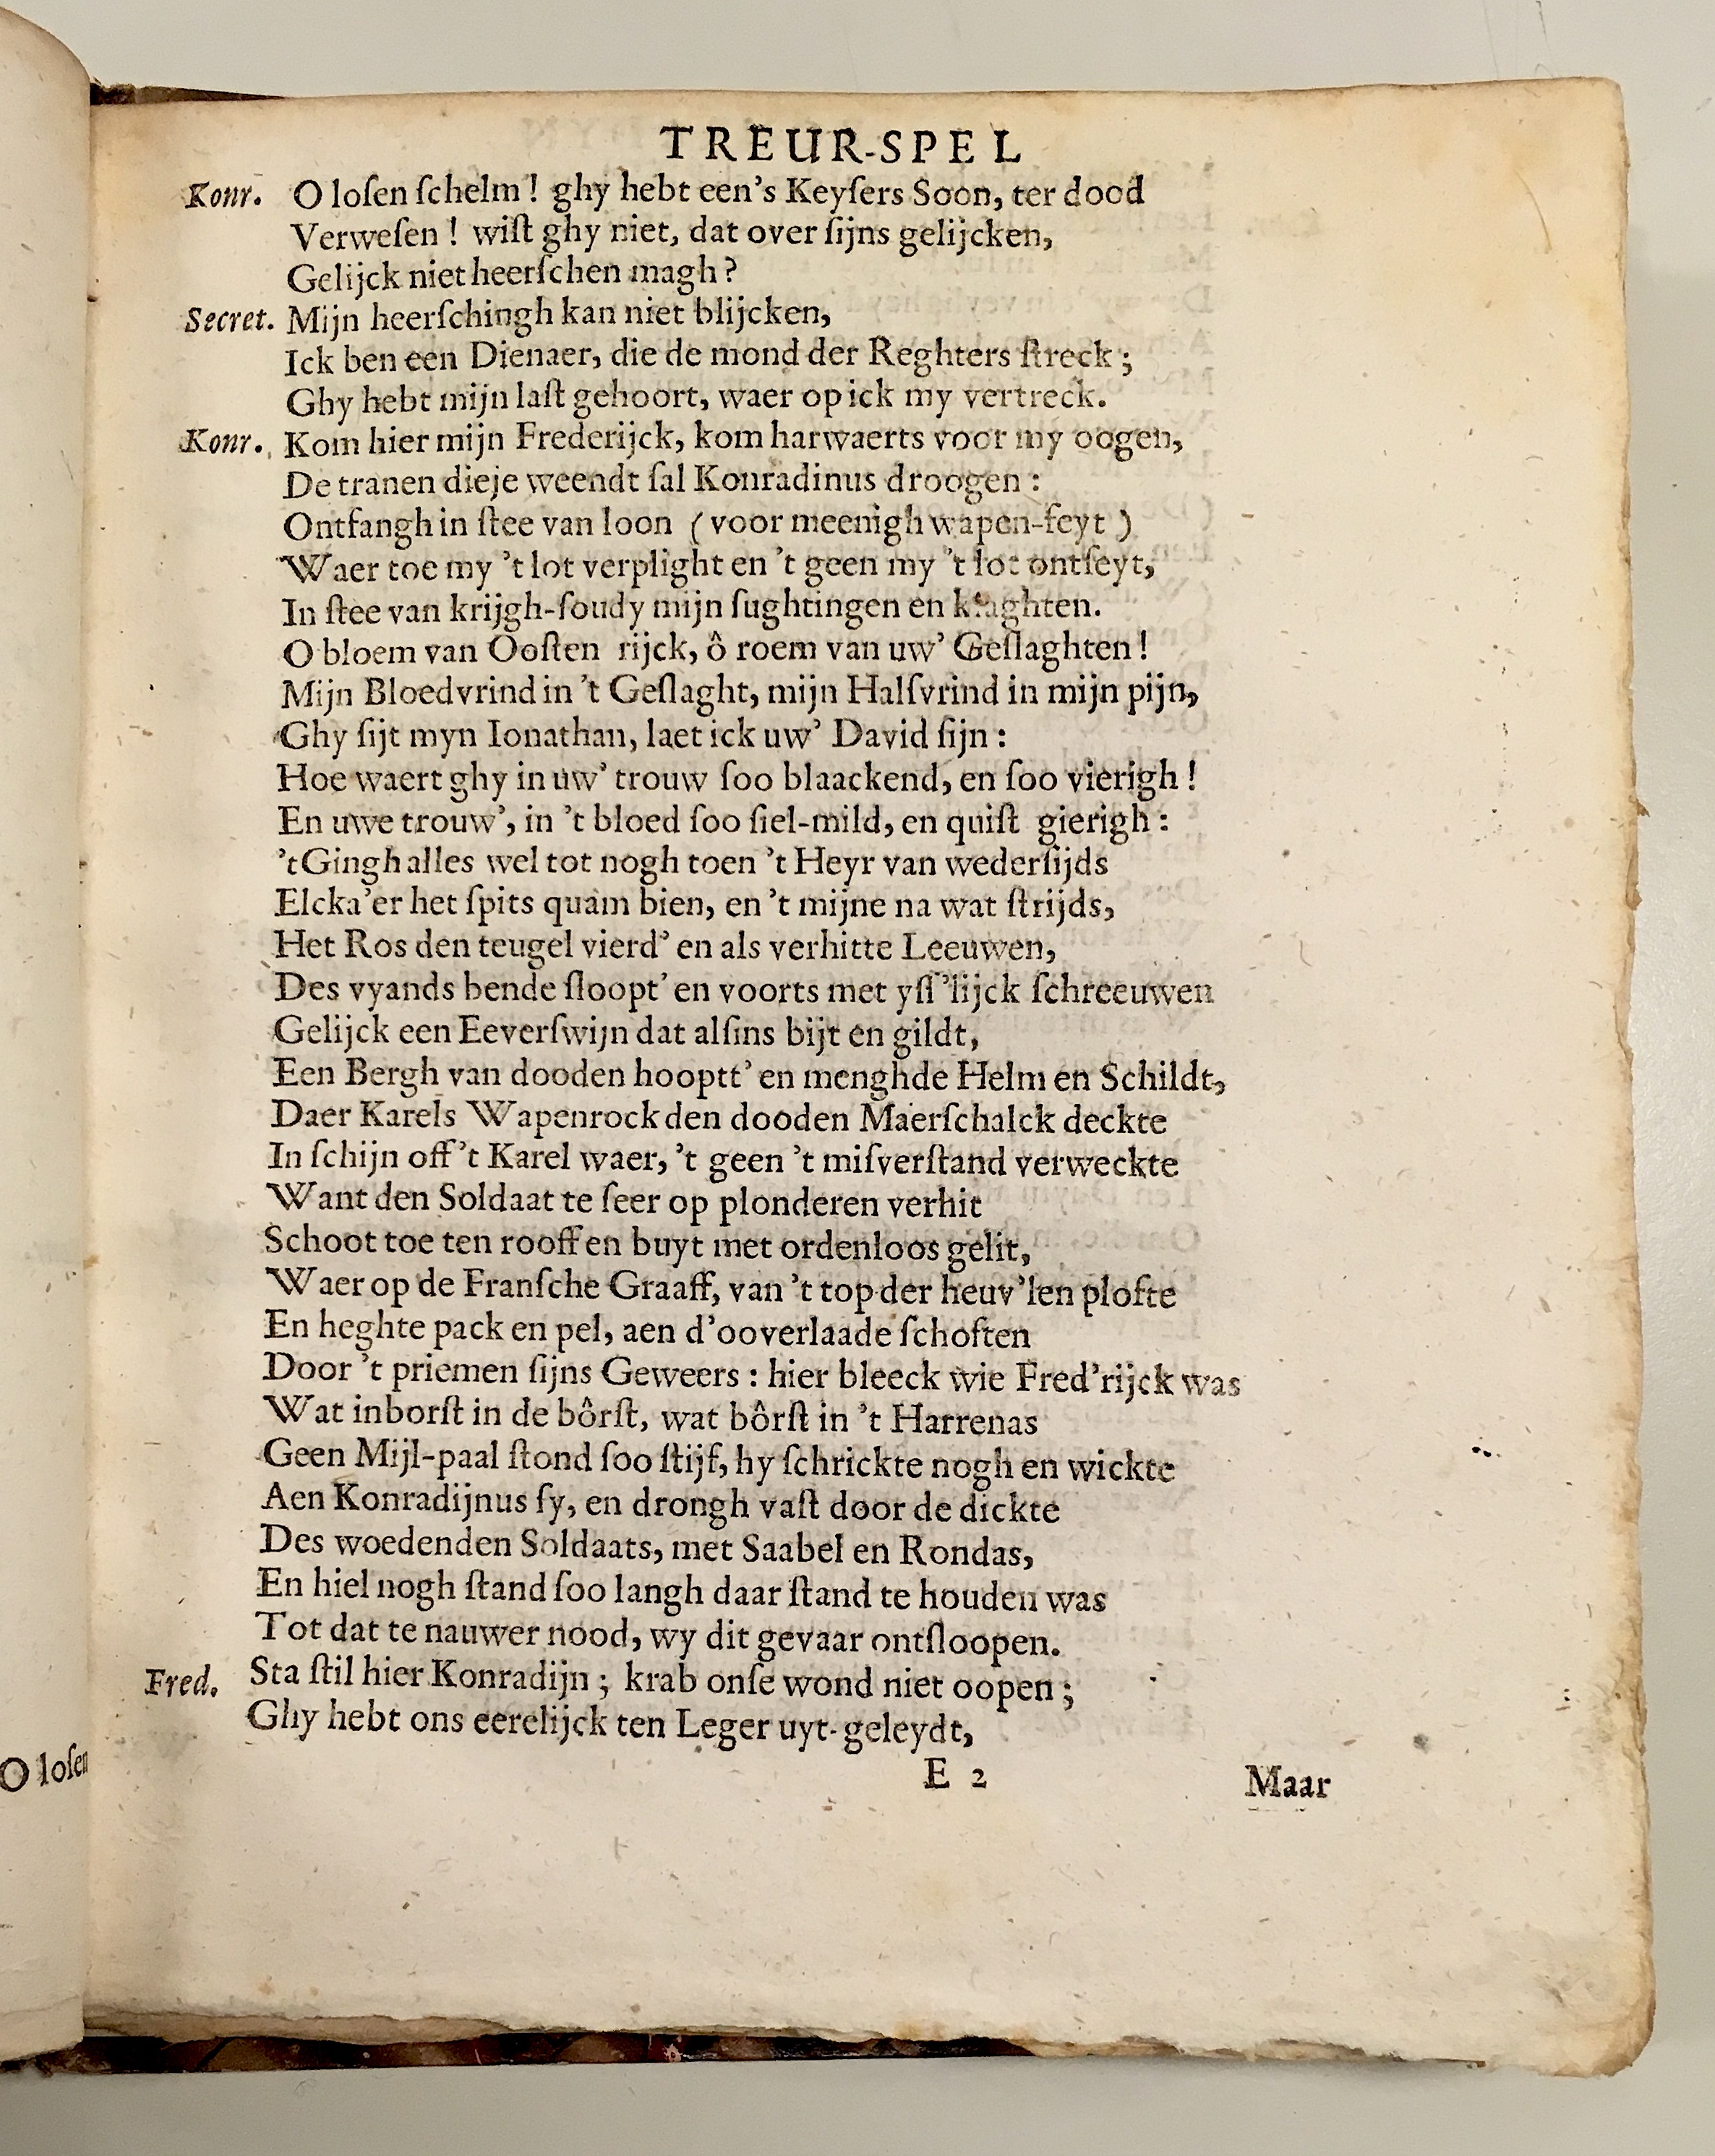 TREUR-SPEL
Konr. O loſen ſchelm! ghy hebt een's Keyſers Soon, ter dood
Verweſen! wiſt ghy niet, dat over ſijns gelijcken,
Gelijck niet heerſchen magh?
Secret. Mijn heerſchingh kan niet blijcken,
Ick ben een Dienaer, die de mond der Reghters ſtreck;
Ghy hebt mijn laſt gehoort, waer op ick my vertreck.
Konr. Kom hier mijn Frederijck, kom harwaerts voor my oogen,
De tranen dieje weendt ſal Konradinus droogen:
Ontfangh in ſtee van loon (voor meenigh wapen-feyt)
Waer toe my 't lot verplight en 't geen my 't lot ontſeyt,
In ſtee van krijgh-ſoudy mijn ſughtingen en klaghten.
O bloem van Ooſten rijck, ô roem van uw' Geſlaghten!
Mijn Bloedvrind in 't Geſlaght, mijn Halſvrind in mijn pijn,
Ghy ſijt myn Ionathan, laet ick uw' David ſijn:
Hoe waert ghy in uw' trouw ſoo blaackend, en ſoo vierigh!
En uwe trouw', in 't bloed ſoo ſiel-mild, en quiſt gierigh:
't Gingh alles wel tot nogh toen 't Heyr van wederſijds
Elcka'er het ſpits quam bien, en 't mijne na wat ſtrijds,
Het Ros den teugel vierd' en als verhitte Leeuwen,
Des vyands bende ſloopt' en voorts met yſſ'lijck ſchreeuwen
Gelijck een Eeverſwijn dat alſins bijt en gildt,
Een Bergh van dooden hooptt' en menghde Helm en Schildt,
Daer Karels Wapenrock den dooden Maerſchalck deckte
In ſchijn off 't Karel waer, 't geen 't miſverſtand verweckte
Want den Soldaat te ſeer op plonderen verhit
Schoot toe ten rooff en buyt met ordenloos gelit,
Waer op de Franſche Graaff, van 't top der heuv'len plofte
En heghte pack en pel, aen d'ooverlaade ſchoften
Door 't priemen ſijns Geweers: hier bleeck wie Fred'rijck was
Wat inborſt in de bôrſt, wat bôrſt in 't Harrenas
Geen Mijl-paal ſtond ſoo ſtijf, hy ſchrickte nogh en wickte
Aen Konradijnus ſy, en drongh vaſt door de dickte
Des woedenden Soldaats, met Saabel en Rondas,
En hiel nogh ſtand ſoo langh daar ſtand te houden was
Tot dat te nauwer nood, wy dit gevaar ontſloopen.
Fred. Sta ſtil hier Konradijn; krab onſe wond niet oopen;
Ghy hebt ons eerelijck ten Leger uyt-geleydt,
O loſen
E 2 Maar